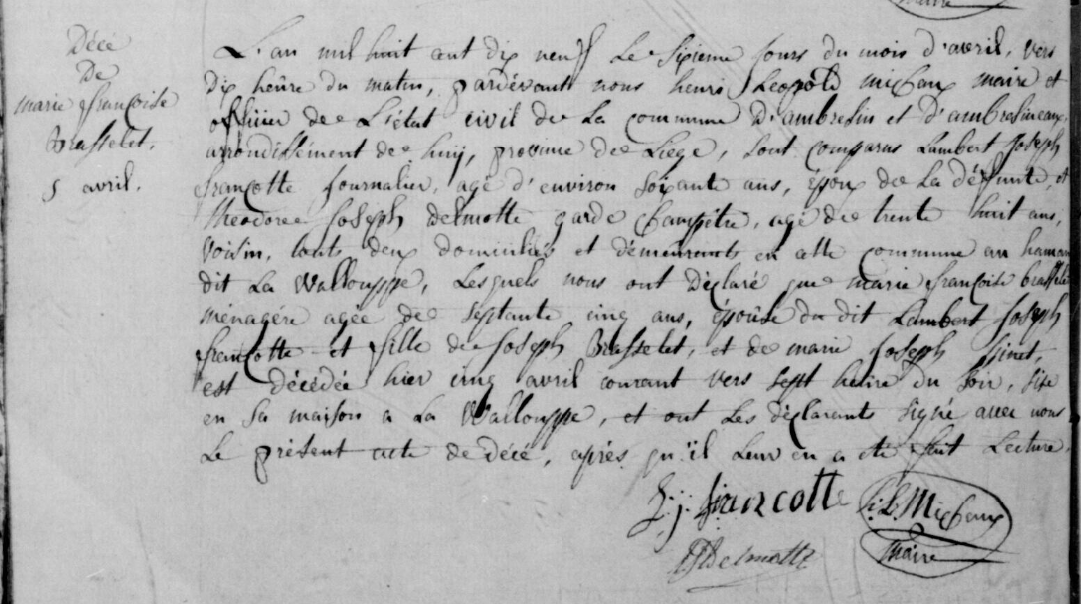 maire
Décé
De
marie françoise
Brasselet.
5 avril.
L'an mil huit cent dix neuf le sixieme jours du mois d'avril, vers
Dix heure du matin, pardevant nous henri Leopold michaux maire et
officier de L'état civil de La commune D'ambresin et D'ambresineaux,
arrondissement de huy, province de Liege, sont comparus Lambert Joseph
françotte journalier, agé d'environ soixante ans, époux de La défunte, et
theodore Joseph delmotte garde champêtre, agé de trente huit ans,
voisin, touts deux domiciliés et démeurants en cette commune au hameau
dit La Wallouppe, Lesquels nous ont Déclaré que marie françoise brasselet
ménagére agée de septante cinq ans, épouse du dit Lambert Joseph
françotte et fille de Joseph Brasselet, et de marie Joseph
est décédée hier cinq avril courant vers sept heure du soir, size
en sa maison a La Wallouppe, et ont Les déclarants signé avec nous
Le présent acte de décé, aprés qu'il Leur en a été fait Lecture.
L: j: françotte
h: L: Michaux
maire
T J Delmotte